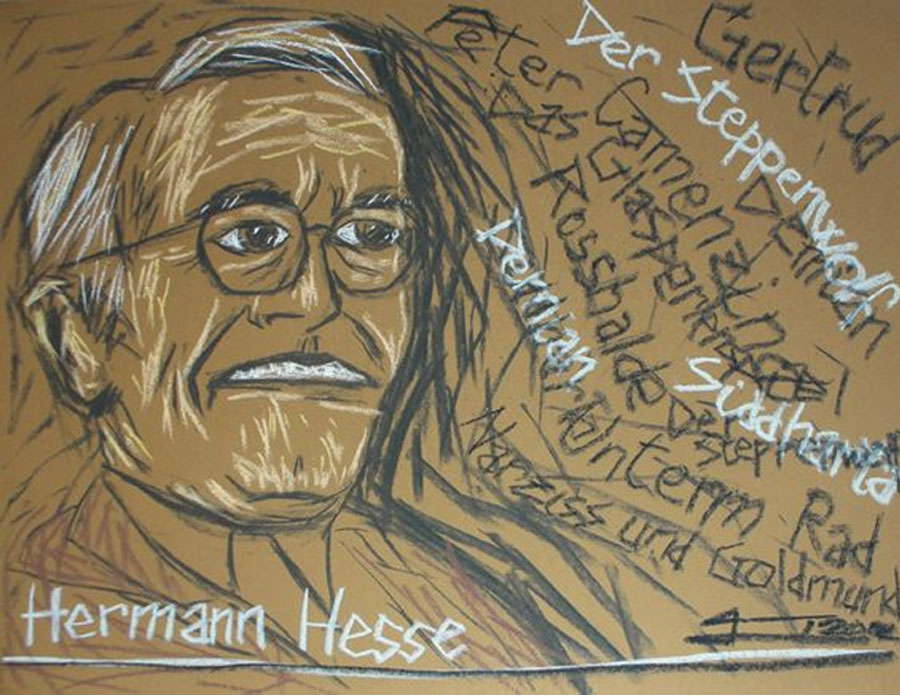 Gertrud
Der Steppenwolf
Peter Camenzind
Das Glasperlen
Rosshalde
Demian
Siddharta
Unterm Rad
Narziss und Goldmund
Hermann Hesse